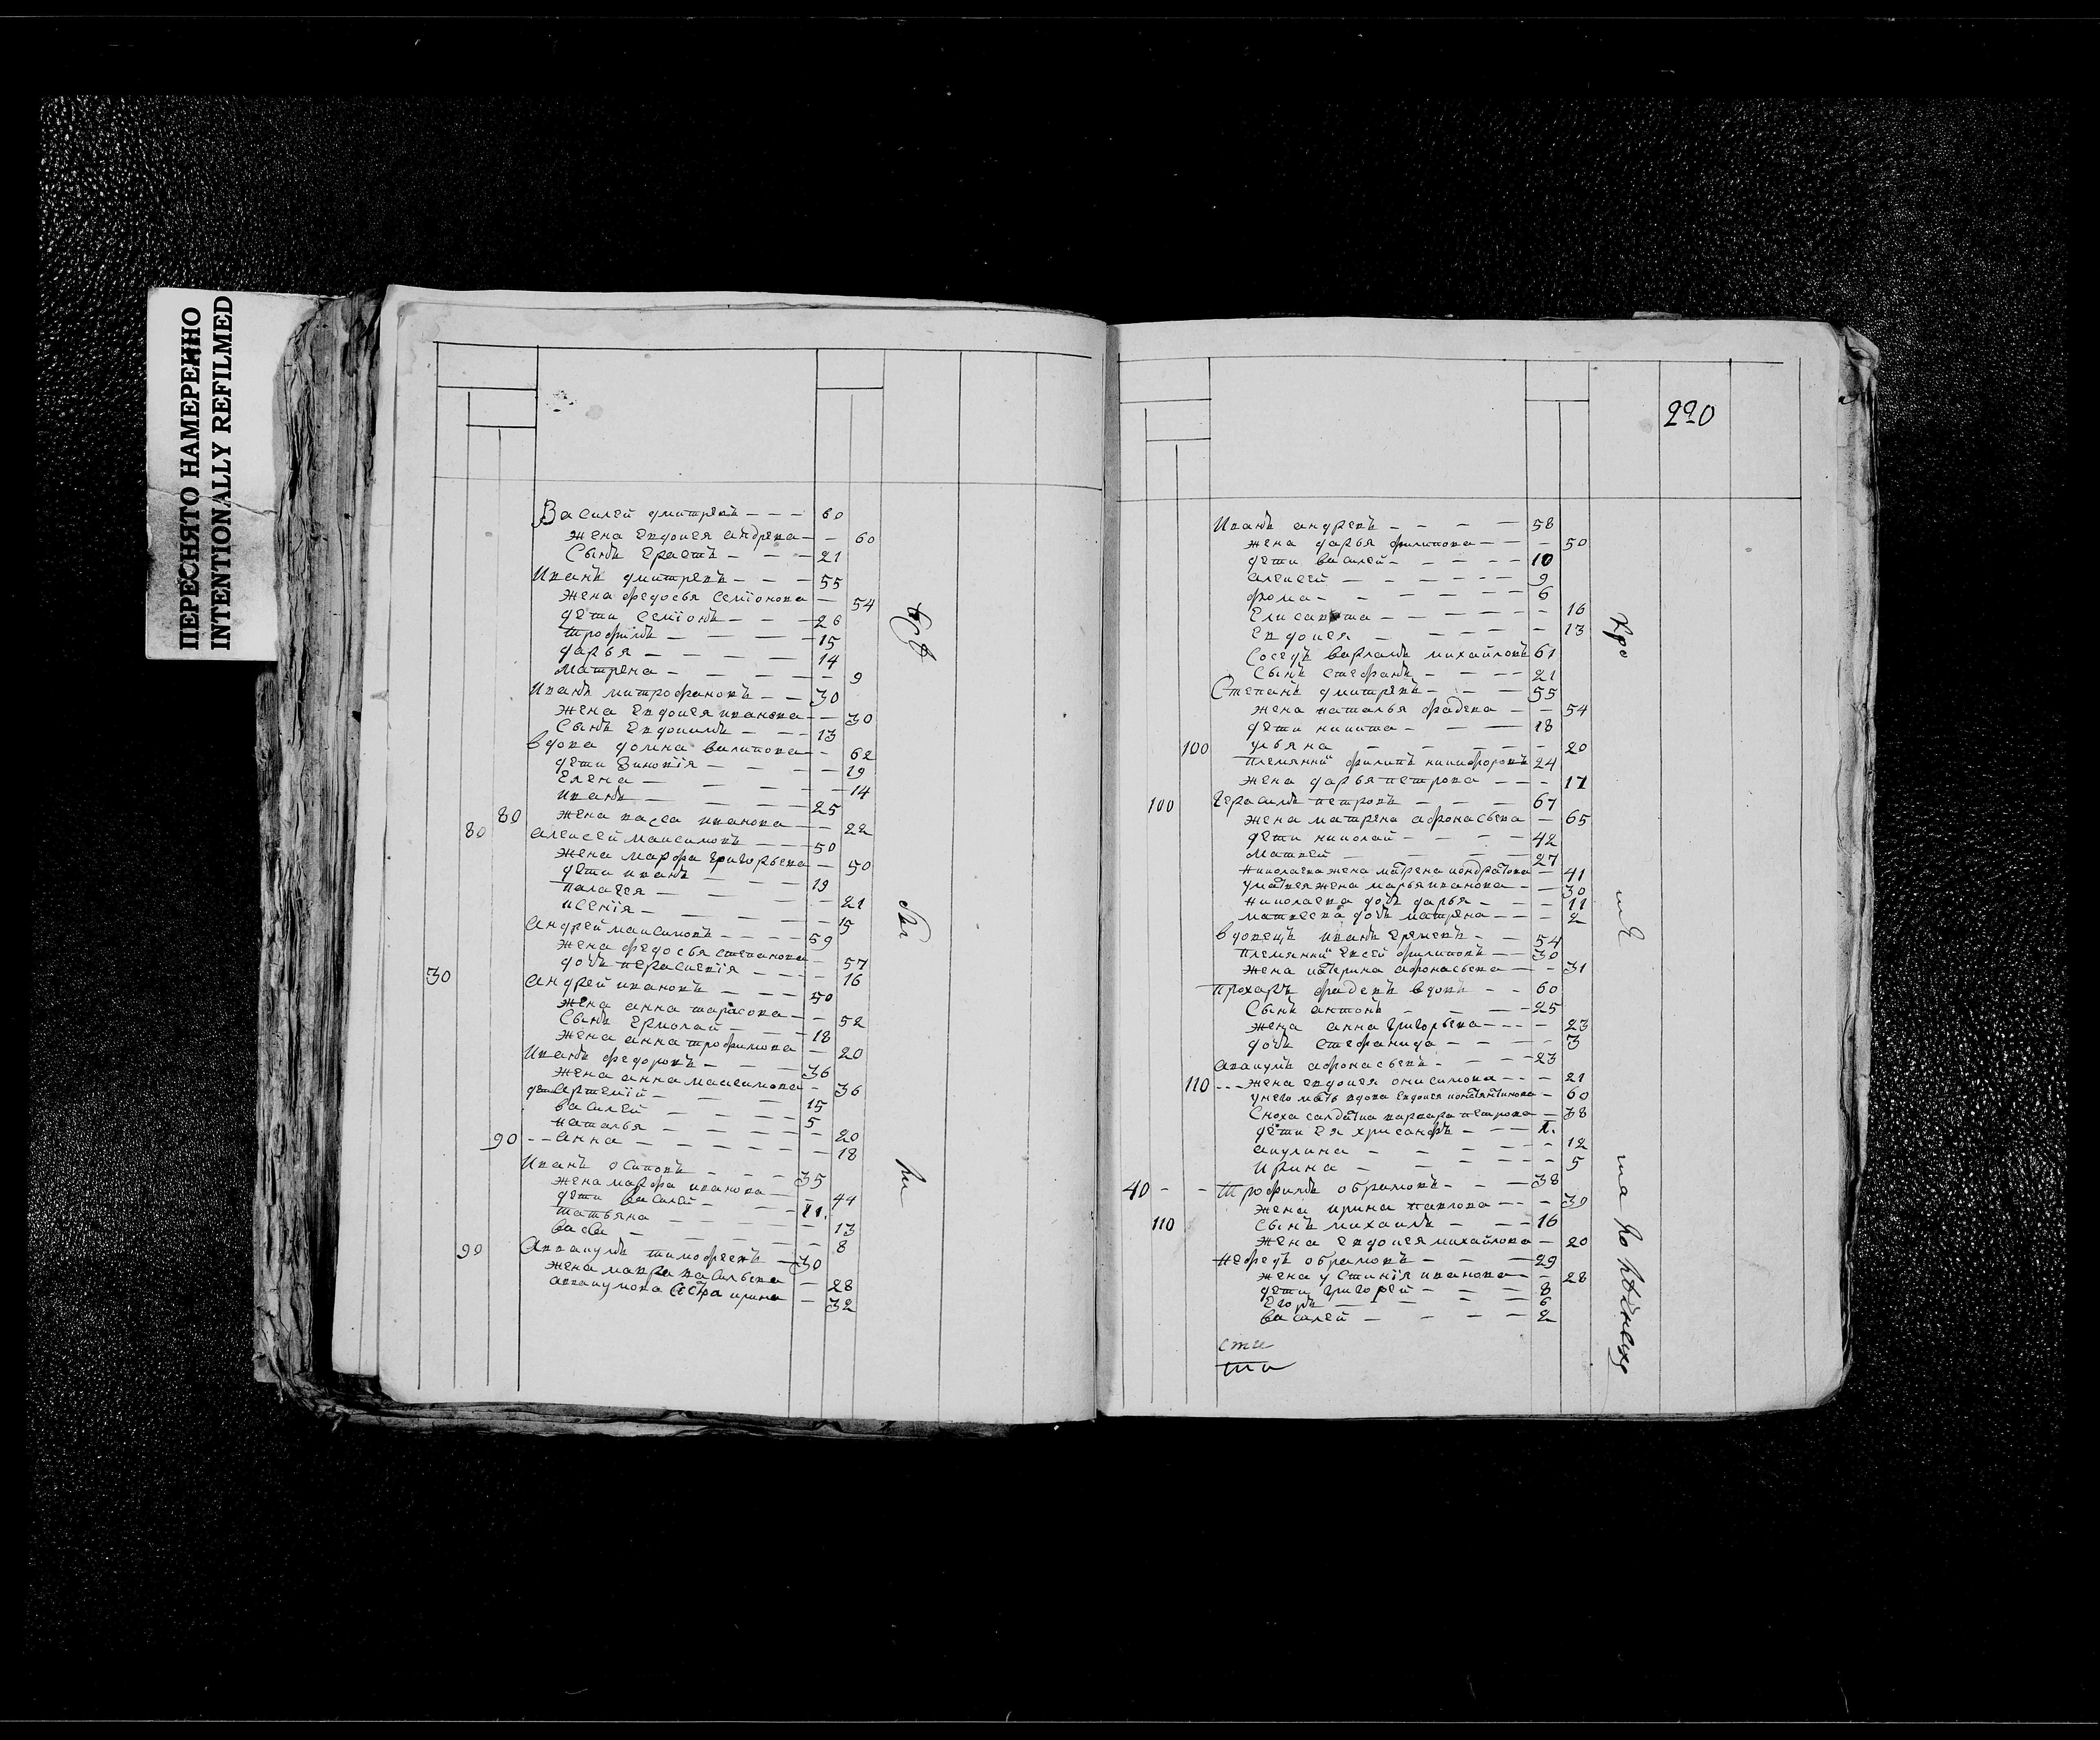 ПЕРЕСНЯТО НАМЕРЕННО
INTENTIONALLY REFILMED
Василей дмитревъ - - - 60
жена евдокея андрева - - 60
Сынъ Ерастъ - - - 21
Иванъ дмитревъ - - - 55
жена федосья семіонова - 54
дети семіонъ - - - 26
трофимъ - - - 15
дарья - - - 14
матрена - - - 9
Иванъ митрофановъ - - 30
жена евдокея иванова - - 30
Сынъ евдокимъ - - - 13
вдова домна - 62
дети Зиновія - - - 19
елена - - - 14
иванъ - - - 25
80 жена васса иванова - - 22
80 алексей максимовъ - - - 50
жена марфа григорьева - 50
дети иванъ - - - 19
палагея - - - 21
ксенія - - - 15
андрей максимовъ - - - 59
жена федосья степанова - 57
дочь перасковія - - - 16
30 андрей ивановъ - - - 50
жена анна тарасова - - 52
Сынъ ермолай - - - 18
жена анна трофимова - 20
Иванъ федоровъ - - - 36
жена анна максимова - 36
дети артемій - - - 15
василей - - - 5
наталья - - - 20
90 - - анна - - - 18
Иванъ осиповъ - - - 35
жена марфа иванова - 44
дети василей - - - 11.
татьяна - - - 13
васса - - - 8
90 Аввакумъ тимофеевъ - 30
жена мавра васильева - 28
аввакумова сестра ирина - 32
220
Иванъ андревъ - - - 58
жена дарья филипова - - - 50
дети василей - - - 10
алексей - - - 9
фома - - - 6
елисавета - - - 16
евдокея - - - 13
Соседъ варламъ михайловъ 61
Сынъ стефанъ - - - 21
Степанъ дмитревъ - - - 55
жена наталья фадеева - - 54
дети никита - - - 18
100 ульяна - - - 20
племянник филипъ никифоровъ 24
жена дарья петрова - - - 17
100 герасимъ петровъ - - - 67
жена матрена афонасьева - 65
дети николай - - - 42
матвей - - - 27
николаева жена матрена кондратова - 41
у матвея жена марья иванова - - 30
николаева дочь дарья - - - 11
матвеева дочь матрена - - - 2
вдовецъ иванъ еремевъ - - 54
племянник евсей филиповъ - 30
жена катерина афонасьева - - 31
прохаръ фадевъ вдовъ - - 60
Сынъ антонъ - - - 25
жена анна григорьева - - - 23
дочь стефанида - - - 3
авакумъ афонасьевъ - - - 23
110 - - - жена евдокея онисимова - - - 21
у него мать вдова евдокея константинова - 60
Сноха салдатка варвара петрова - 38
дети ея хрисанфъ - - - 1.
акулина - - - 12
ирина - - - 5
40 - - трофимъ обрамовъ - - - 38
жена ирина павлова - - - 39
110 Сынъ михаилъ - - - 16
жена евдокея михайлова - 20
нефедъ обрамовъ - - - 29
жена устинія иванова - - 28
дети григорей - - - 8
егоръ - - - 6
василей - - - 2